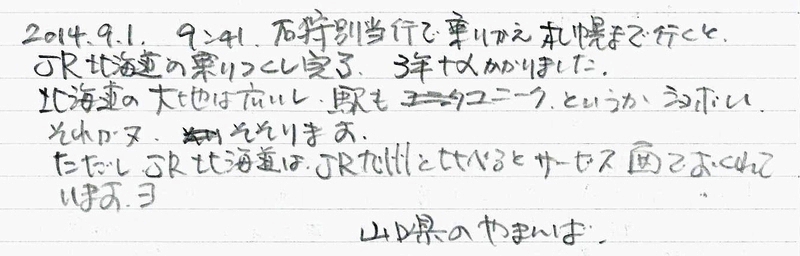 2014.9.1. 9:41. 石狩別当行で乗りかえ 札幌まで行くと、
JR北海道の乗りつくし完了. 3年+αかかりました.
北海道の大地は広いし. 駅もユニーク. というか ショボい.
それがヌ. そそります.
ただし JR北海道は. JR九州と比べるとサービス面でおくれて
います.ヨ
山口県のやまんば.